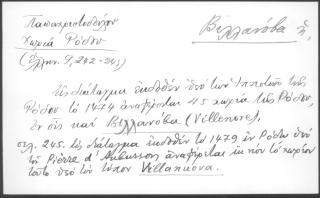 Παπαχριστοδούλου
χωριά Ρόδου
(Ἑλλην. 9, 242-245)
Βιλλανόβα ἡ,
Εἰς διάταγμα ἐκδοθὲν ὑπὸ τῶν Ἱπποτῶν τῆς
Ρόδου τὸ 1474 ἀναφέρονται 45 χωρία τῆς Ρόδου,
ἐν οἷς καὶ Βιλλανόβα (Villenove),
σελ. 245. εἰς διάταγμα ἐκδοθὲν τὸ 1479 ἐν Ρόδῳ ὑπὸ
τοῦ Pierre d'Aubusson ἀναφέρεται τὸ χωρίον
τοῦτο ὑπὸ τὸν τύπον Villanuova.